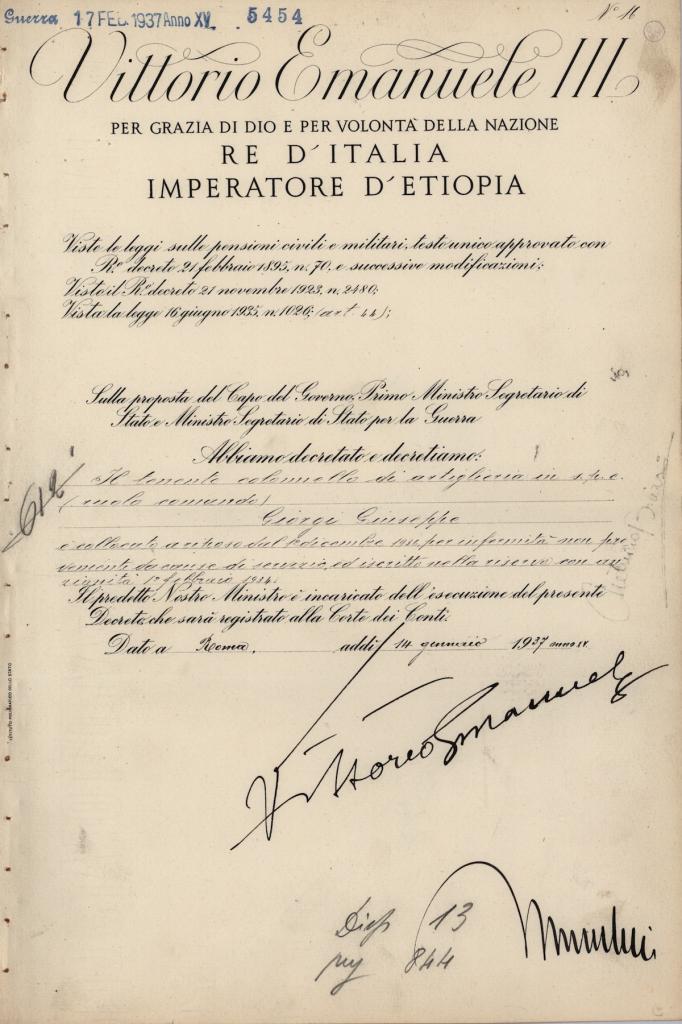 Guerra 17 FEB. 1937 Anno XV 5454
N° 16
Vittorio Emanuele III
PER GRAZIA DI DIO E PER VOLONTÀ DELLA NAZIONE
RE D'ITALIA
IMPERATORE D'ETIOPIA
Viste le leggi sulle pensioni civili e militari, testo unico approvato con
R.° decreto 21 febbraio 1895, n. 70, e successive modificazioni;
Visto il R.° decreto 21 novembre 1923, n. 2480;
Vista la legge 16 giugno 1935, n. 1026; (art. 44);
Sulla proposta del Capo del Governo, Primo Ministro Segretario di
Stato e Ministro Segretario di Stato per la Guerra
Abbiamo decretato e decretiamo:
Il tenente colonnello di artiglieria in s.p.e.
(ruolo comando)
Giorgi Giuseppe
è collocato a riposo dal 1° dicembre per infermità non pro
veniente da cause di servizio, ed iscritto nella riserva con an
zianità 1° febbraio 1934.
Il predetto Nostro Ministro è incaricato dell'esecuzione del presente
Decreto, che sarà registrato alla Corte dei Conti.
Dato a Roma, addì 14 gennaio 1937 anno XV
Vittorio Emanuele
Mussolini
13
844
ISTITUTO POLIGRAFICO DELLO STATO